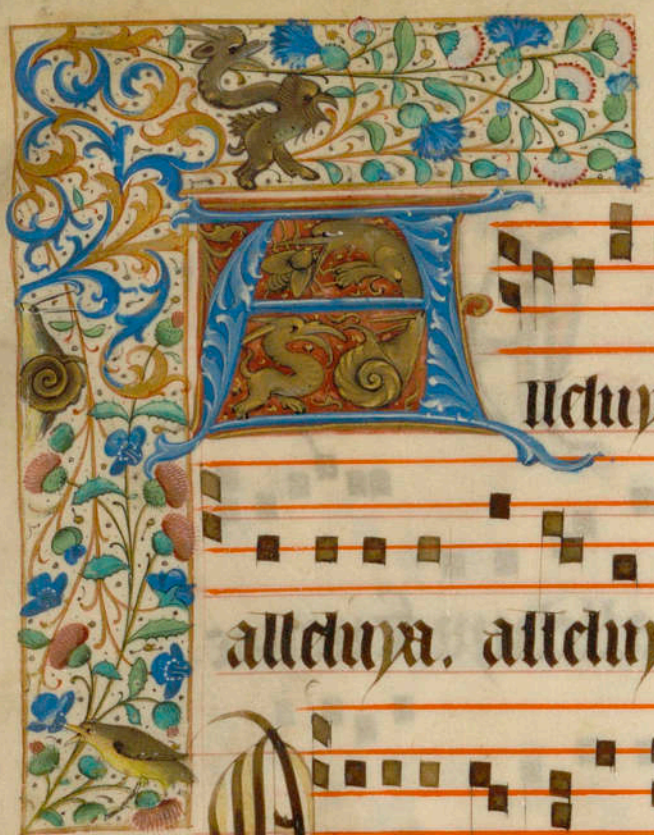 Alleluy
alleluya. alleluy